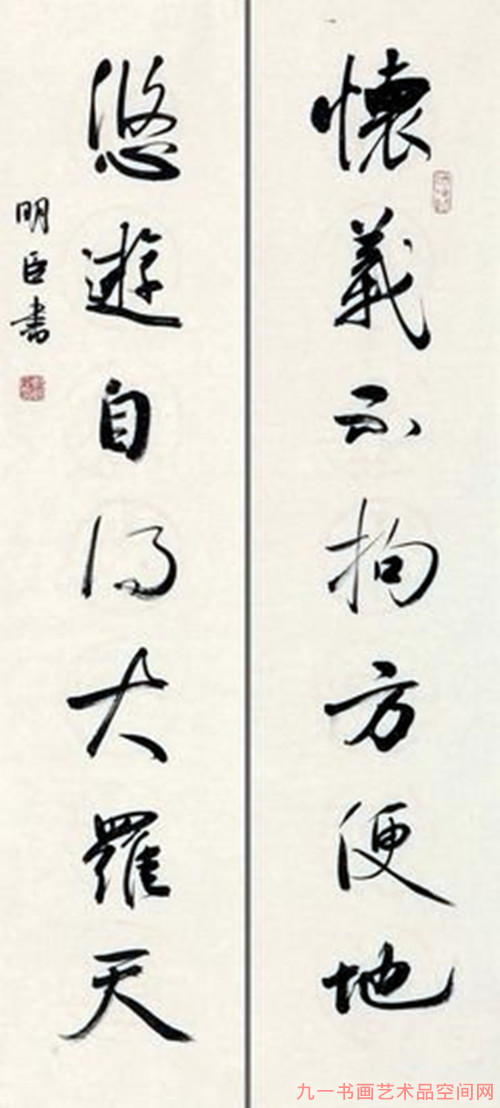 懷義不拘方便地
悠遊自得大羅天
明臣书
九一书画艺术品空间网